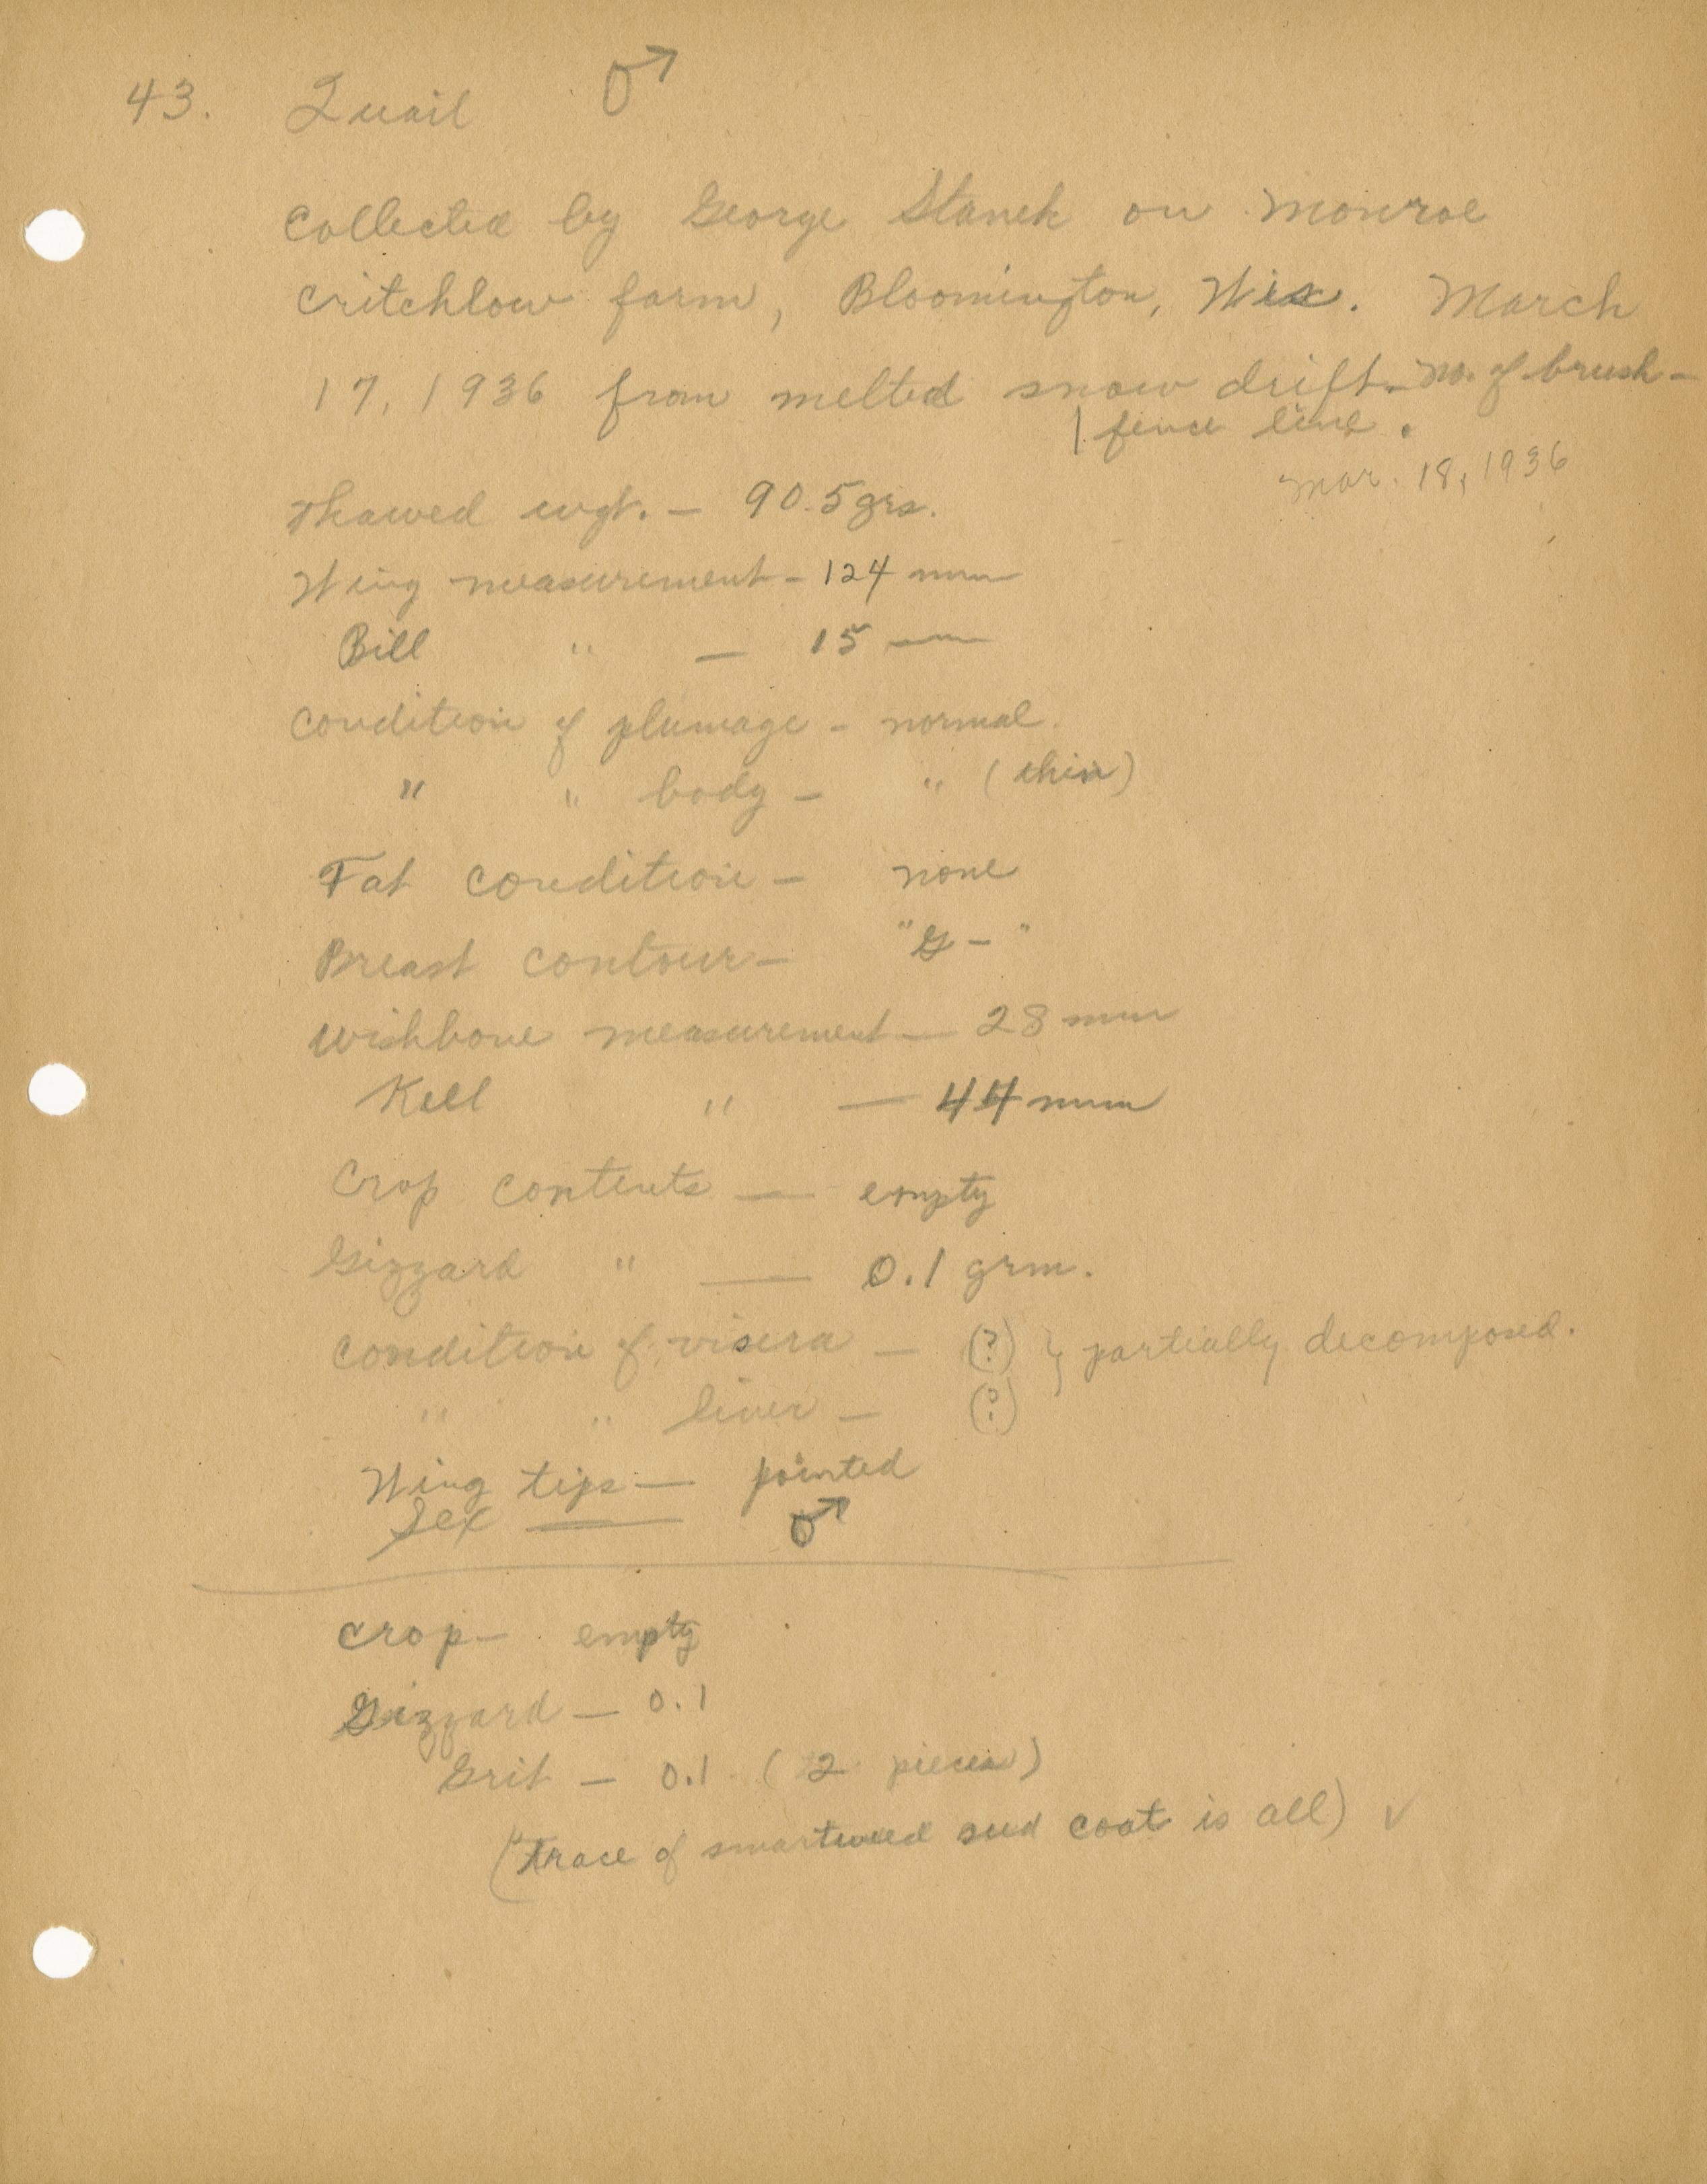 43. Quail ♂
Collected by George Stanek on Monroe
Critchlow farm, Bloomington, Wis. March
17, 1936 from melted snow drift no. of brush-
| fence line.
Mar. 18, 1936
Thawed wgt. – 90.5 grs.
Wing measurement – 124 mm
Bill " – 15 mm
Condition of plumage – normal.
" " body – " (thin)
Fat condition – none
Breast contour – "G – "
Wishbone measurement – 28 mm
Keel " – 44 mm
Crop contents – empty
Gizzard " – 0.1 grm.
Condition of visera – (?) } partially decomposed.
" " liver – (?)
Wing tips – pointed
Sex – ♂
Crop – empty
Gizzard – 0.1
Grit – 0.1 (2 pieces)
(Trace of smartweed seed coat is all) ✓